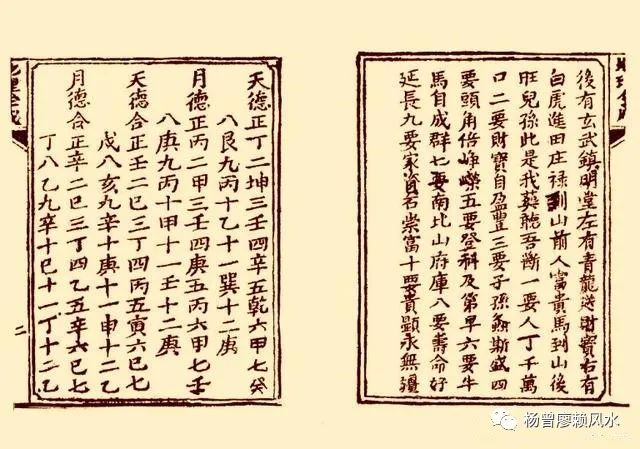 後有玄武鎮明堂左有青龍送財寶右有
白虎進田庄禄到山前人富貴馬到山後
旺兒孫此是我葬聽吾断一要人丁千萬
口二要財寶自盈豐三要子孫螽斯盛四
要頭角倍崢嶸五要登科及第早六要牛
馬自成群七要南北山府庫八要壽命好
延長九要家資石崇富十要貴顯永無疆
天德正丁二坤三壬四辛五乾六甲七癸
八艮九丙十乙十一巽十二庚
月德正丙二甲三壬四庚五丙六甲七壬
八庚九丙十甲十一壬十二庚
天德合正壬二巳三丁四丙五寅六巳七
戊八亥九辛十庚十一申十二乙
月德合正辛二巳三丁四乙五辛六巳七
丁八乙九辛十巳十一丁十二乙
二
杨曾廖赖风水